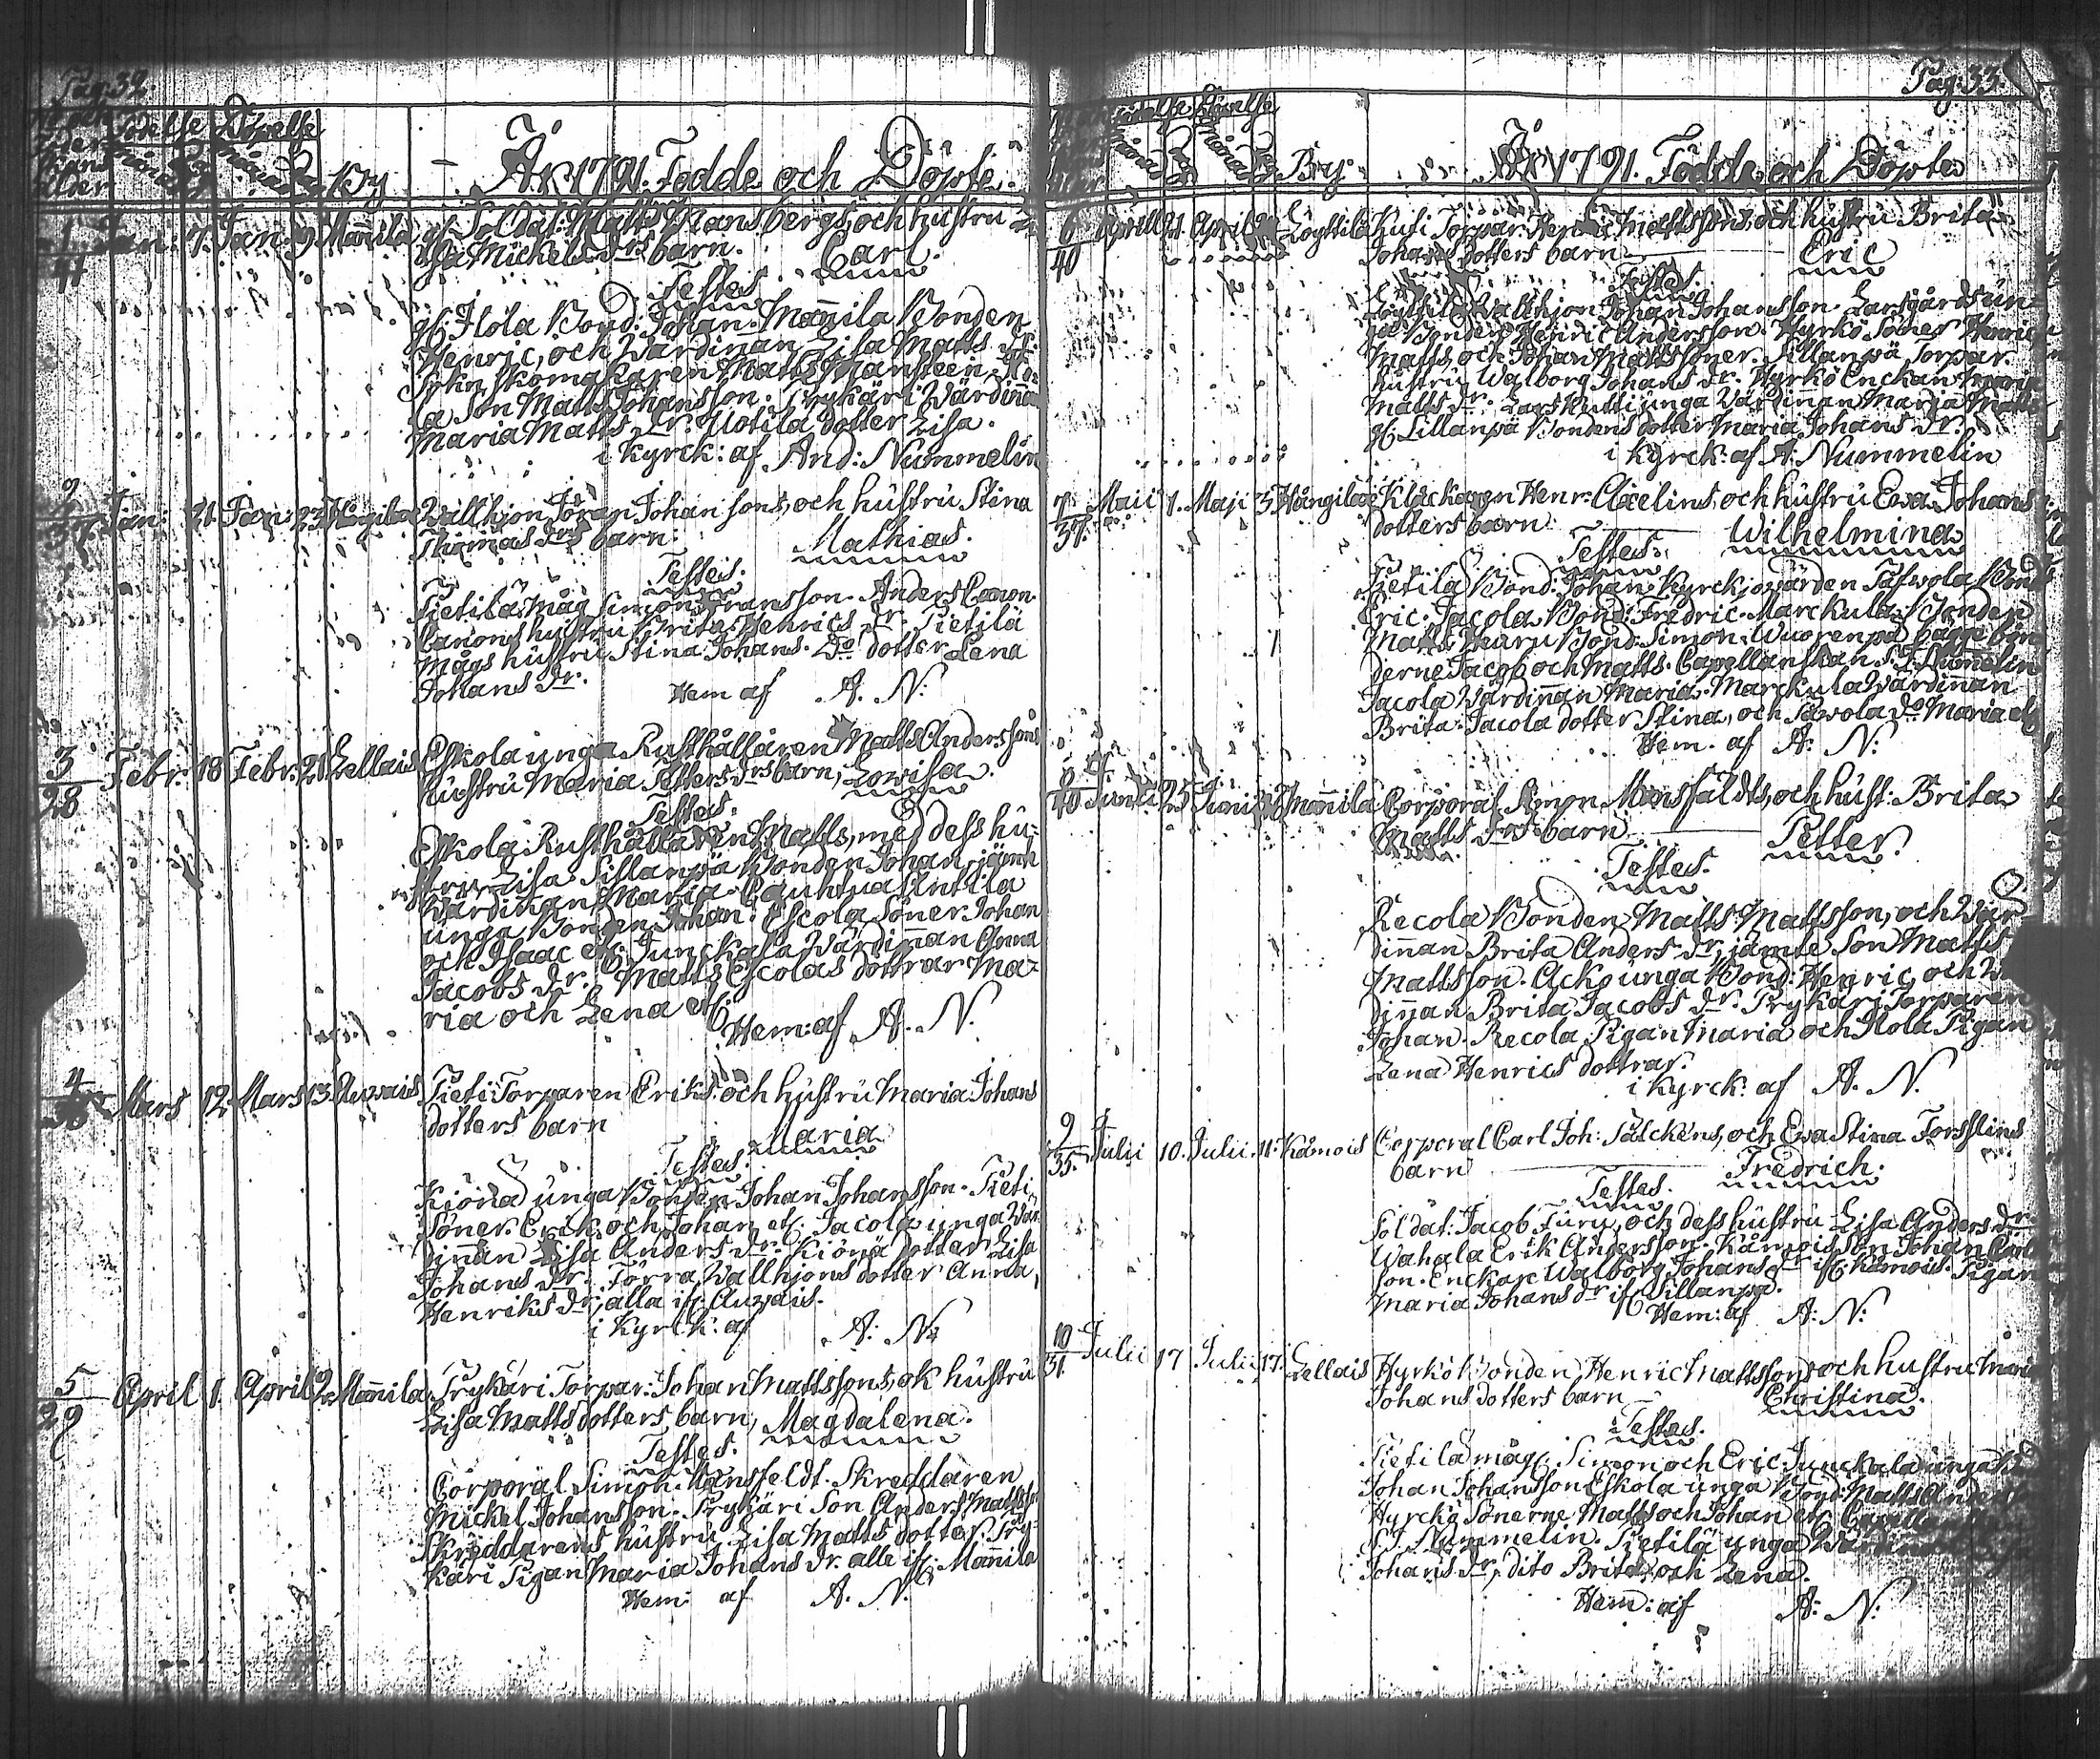 Pag: 32.
Födelse Döpelse
By
År 1791. Födde och Döpte.
1/41 Jan: 7. Jan: 9. Mannila gl. Soldat: Matts Mansbergs, och hustru
Mickels drs barn. Carl.
Testes.
gl. Flola Bond: Johan. Mannila Bonden
Henric, och Wärdinan Lisa Matts dr.
Sokn Skomakaren Matts Mansteen
la Son Matts Johansson. Prykäri Wärdinna
Maria Matts dr. Dotter Lisa.
i Kyrck: af And: Nummelin
2/37 Jan: 21. Jan: 23. Wallhjon Göran Johansons, och hustru Stina
Thomas drs barn. Mathias.
Testes.
Pietilä måg Simon Fransson. Anders Canon.
Canons hustru Brita Henrics dr. Pietilä
mågs hustru Stina Johans. Do dotter Lena
Johans dr. Hem af A. N:
3/28 Febr: 18 Febr: 21 Lellais Eskola unga Rusthållaren Matts Anderssons
hustru Maria Petters drs barn, Lowisa.
Testes.
Eskola Rusthållaren Matts, med dess hu-
stru Lisa Sillanpä Bonden Johan, jämte
Wärdinan Maria. Cauhtua Antila
unga Bonden Johan. Escola Söner Johan
och Isaac etc. Junckala Wärdinnan Anna
Jacobs dr. Matts Escolas dottrar Ma-
ria och Lena etc.
Hem: af A. N.
4 Mars 12 Mars 13 Auvais Pieti Torparen Eriks och hustru Maria Johans
dotters barn Maria
Testes.
Kiönä unga Bonden Johan Johansson. Pieti
Söner. Erik och Johan etc. Jacola unga Wär-
dinnan Lisa Anders dr. Kiönä dotter Lisa
Johans dr. Törra Wallhjons dotter Anna
Henriks dr, alla if. Auvais.
i Kyrck: af A: N:
5/29 April 1. April 2. Mannila Prykäri Torpar: Johan Mattssons, ok hustru
Lisa Matts dotters barn, Magdalena.
Testes.
Corporal Simon Mansfeldt. Skreddaren
Mickel Johansson. Prykäri Son Anders Mattsso
Skreddarens hustru Lisa Matts dotter. Pry-
käri Pigan Maria Johans dr. alle if. Mannila
Hem: af A. N.
Pag: 33.
By
År 1791. Födde och Döpte
6/40 April 21. April Löyttilä Kuti Torpar: Henric Mattssons, och hustru Brita
Johans dotters barn Eric
Testes.
Löyttilä Wallhjon Johan Johansson. Larsgårds un-
ga Bonden Henric Andersson. Hyrkö Söner Henric
Matts, och Johan Mattssöner. Sillanpä Torpar.
hustru Walborg Johans dr. Hyrkö Enckan
Matts dr. Lars Kutti unga Wärdinan Maria Matts
gl. Sillanpä Bondens dotter Maria Johans dr.
i Kyrck: af A: Nummelin
7/37 Maii 1. Maji 3. Klockaren Henr: Axelins, och hustru Eva Johans
dotters barn. Wilhelmina
Testes.
Pietilä Bond: Johan. Kyrckiowärden Tafwola Bond
Eric. Jacola Bond: Fredric. Marckula Bonden
Matts. Bond: Simon. Wuorenpä bägge bön-
derne Jacob och Matts. Capellanskan S. J. Numelin
Jacola Wärdinnan Maria. Marckula Wärdinnan
Brita. Jacola dotter Stina, och Do Maria etc.
Hem. af A: N:
8/40 Junii 25 Junii Mannila Corporal Simon Mansfäldts, och hust: Brita
Matts drs barn Petter.
Testes.
Recola Bonden Matts Mattsson, och Wär-
dinnan Brita Anders dr, jämte Son Matts
Mattsson. Acko unga Bond: Henric, och
dinnan Brita Jacobs dr. Prykäri Torparen
Johan. Recola Pigan Maria och Flola Pigan
Lena Henrics dottrar.
i Kyrck: af A. N.
9/35. Julii 10. Julii 11. Kämois Corporal Carl Joh: Falckens, och Eva Stina Forsslins
barn Fredrich.
Testes.
Soldat: Jacob Furu, och dess hustru Lisa Anders dr.
Wahala Erik Andersson. Kämois Son Johan
son. Enckan Walborg Johans dr if. Kämois. Pigan
Maria Johans dr if. Sillanpä.
Hem: af A: N:
10/31. Julii 17 Julii 17. Lellais Hyrkö Bonden Henric Mattssons och hustru Maria
Johans dotters barn Christina.
Testes.
Pietilä måg. Simon och Eric Junckala unga
Johan Johansson Eskola unga Bond: Matts
Hyrckö Sönerne Matts och Johan etc.
S. J. Nummelin. Pietilä unga
Johans dr, dito Brita, och Lena.
Hem: af A: N: